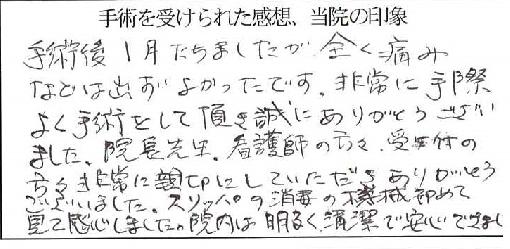 手術を受けられた感想、当院の印象
手術後1月たちましたが、全く痛み
などは出ずよかったです。非常に手際
よく手術をして頂き誠にありがとうござい
ました。院長先生、看護師の方々、受付の
方々も非常に親切にしていただきありがとう
ございました。スリッパの消毒の機械初めて
見て感心しました。院内は明るく清潔で安心できまし